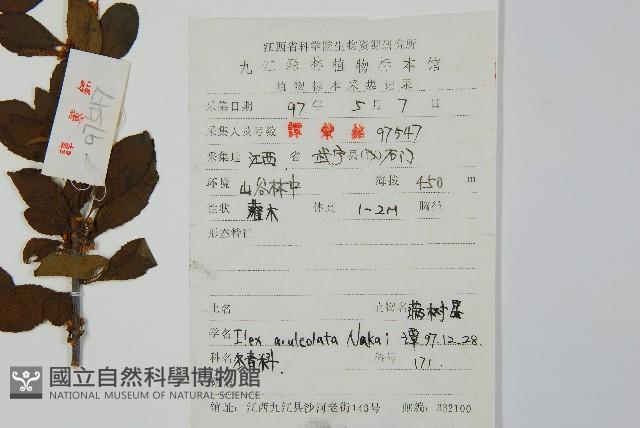 江西省科学院生物资源研究所
九江森林植物标本馆
植物标本采集记录
采集日期 97 年 5 月 7 日
采集人及号数 譚策銘 97547
采集地 江西 省 武宁县 石门
环境 山谷林中 海拔 450 m
性状 灌木 体高 1-2M 胸径
形态特征
土名 植物名 满树星
学名 Ilex aculeolata Nakai 譚 97.12.28
科名 冬青科 科号 171.
馆址: 江西九江县沙河老街143号 邮编: 332100
譚策銘
97547
國立自然科學博物館
NATIONAL MUSEUM OF NATURAL SCIENCE